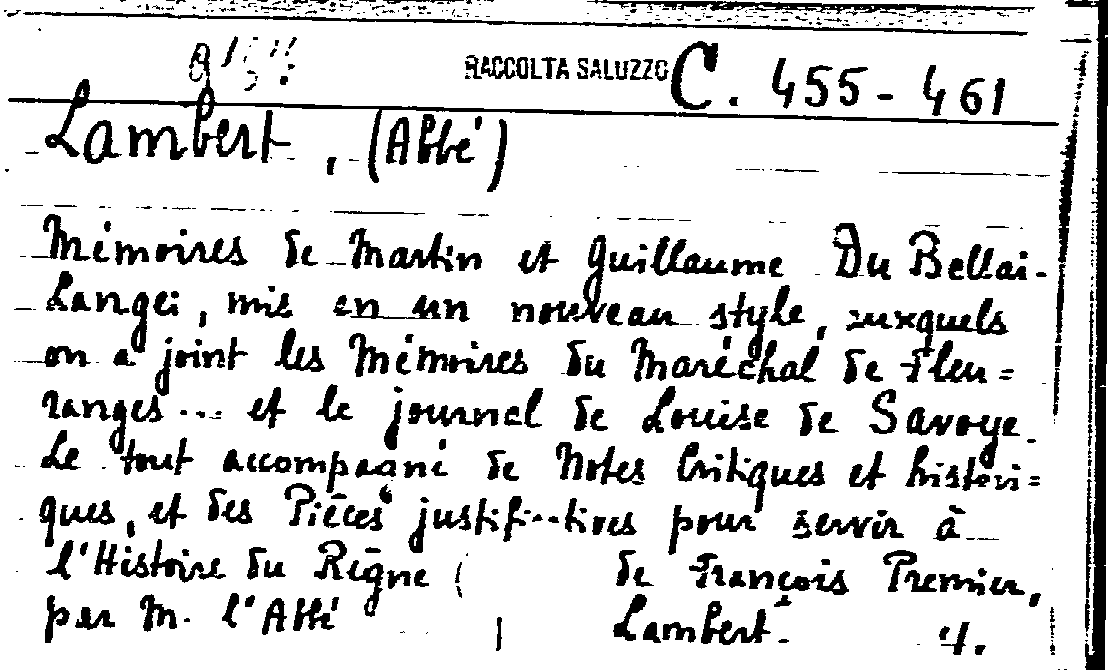 RACCOLTA SALUZZO C. 455-461
Lambert, (Abbé)
Mémoires de Martin et Guillaume Du Bellai-
Langei, mis en un nouveau style, auxquels
on a joint les Mémoires du Maréchal de Fleu=
ranges... et le journal de Louise de Savoye.
Le tout accompagné de Notes Critiques et histori=
ques, et des Pièces justificatives pour servir à
l'Histoire du Règne de François Premier,
par M. l'Abbé Lambert. 4.